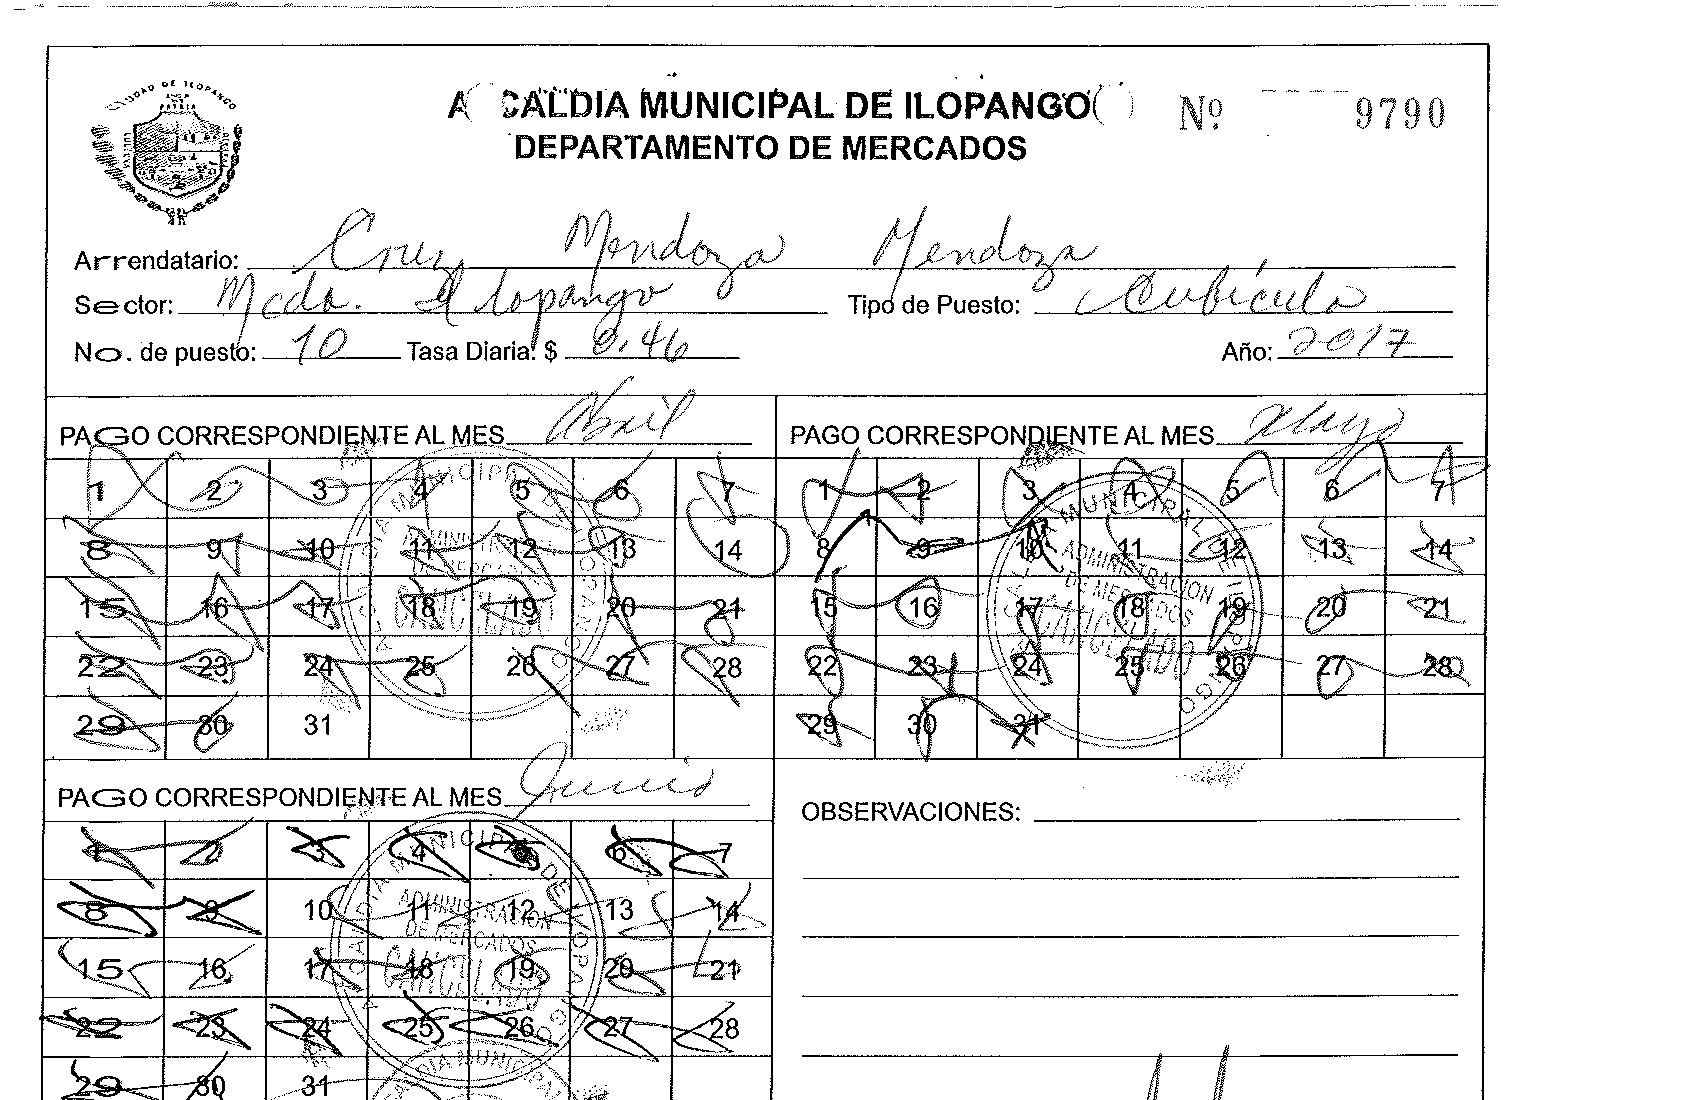 CIUDAD DE ILOPANGO
ALCALDIA MUNICIPAL DE ILOPANGO Nº 9790
DEPARTAMENTO DE MERCADOS
Arrendatario: Cruz Mendoza Mendoza
Sector: Mcdo. Ilopango Tipo de Puesto: Cubículo
No. de puesto: 10 Tasa Diaria: $ 0.46 Año: 2017
PAGO CORRESPONDIENTE AL MES Abril
1 2 3 4 5 6 7
8 9 10 11 12 13 14
15 16 17 18 19 20 21
22 23 24 25 26 27 28
29 30 31
ALCALDIA MUNICIPAL DE ILOPANGO
ADMINISTRACION
DE MERCADOS
CANCELADO
PAGO CORRESPONDIENTE AL MES Mayo
1 2 3 4 5 6 7
8 9 10 11 12 13 14
15 16 17 18 19 20 21
22 23 24 25 26 27 28
29 30 31
ALCALDIA MUNICIPAL DE ILOPANGO
ADMINISTRACION
DE MERCADOS
CANCELADO
PAGO CORRESPONDIENTE AL MES Junio
1 2 3 4 5 6 7
8 9 10 11 12 13 14
15 16 17 18 19 20 21
22 23 24 25 26 27 28
29 30 31
ALCALDIA MUNICIPAL DE ILOPANGO
ADMINISTRACION
DE MERCADOS
CANCELADO
DIA MUNICIPAL
OBSERVACIONES: